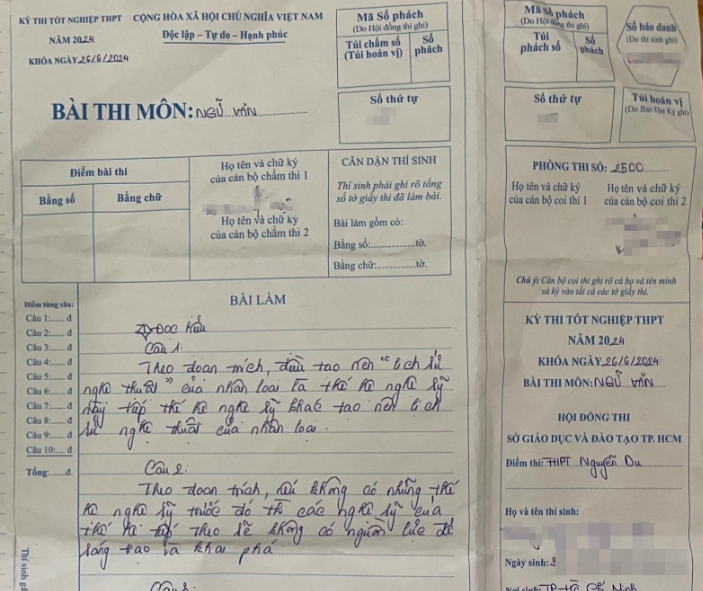 KỲ THI TỐT NGHIỆP THPT
NĂM 2024
KHÓA NGÀY 26/6/2024
CỘNG HÒA XÃ HỘI CHỦ NGHĨA VIỆT NAM
Độc lập – Tự do – Hạnh phúc
BÀI THI MÔN: NGỮ VĂN
Mã Số phách
(Do Hội đồng thi ghi)
Túi chấm số
(Túi hoán vị)
Số
phách
Số thứ tự
Điểm bài thi
Bằng số
Bằng chữ
Họ tên và chữ ký
của cán bộ chấm thi 1
Họ tên và chữ ký
của cán bộ chấm thi 2
CĂN DẶN THÍ SINH
Thí sinh phải ghi rõ tổng
số tờ giấy thi đã làm bài.
Bài làm gồm có:
Bằng số:................tờ.
Bằng chữ:..............tờ.
Điểm từng câu:
Câu 1:...... đ
Câu 2:...... đ
Câu 3:...... đ
Câu 4:...... đ
Câu 5:...... đ
Câu 6:...... đ
Câu 7:...... đ
Câu 8:...... đ
Câu 9:...... đ
Câu 10:..... đ
Tổng:.......đ.
BÀI LÀM
I) ĐỌC hiểu
Câu 1:
Theo đoạn trích, điều tạo nên "lịch sử
nghệ thuật" của nhân loại là thế hệ nghệ sỹ
này tiếp thế hệ nghệ sỹ khác tạo nên lịch
sử nghệ thuật của nhân loại.
Câu 2:
Theo đoạn trích, nếu không có những thế
hệ nghệ sỹ trước đó thì các nghệ sỹ của
thế hệ tiếp theo sẽ không có nguồn lực để
sáng tạo là khai phá.
Câu 3:
Mã Số phách
(Do Hội đồng thi ghi)
Túi
phách số
Số
phách
Số báo danh
(Do thí sinh ghi)
Số thứ tự
Túi hoán vị
(Do Ban Thư Ký ghi)
PHÒNG THI SỐ: 2500
Họ tên và chữ ký
của cán bộ coi thi 1
Họ tên và chữ ký
của cán bộ coi thi 2
Chú ý: Cán bộ coi thi ghi rõ cả họ và tên mình
và ký vào tất cả các tờ giấy thi.
KỲ THI TỐT NGHIỆP THPT
NĂM 2024
KHÓA NGÀY 26/6/2024
BÀI THI MÔN: NGỮ VĂN
HỘI ĐỒNG THI
SỞ GIÁO DỤC VÀ ĐÀO TẠO TP. HCM
Điểm thi: THPT Nguyễn Du
Họ và tên thí sinh:
Ngày sinh:
Nơi sinh: TP Hồ Chí Minh
Thí sinh